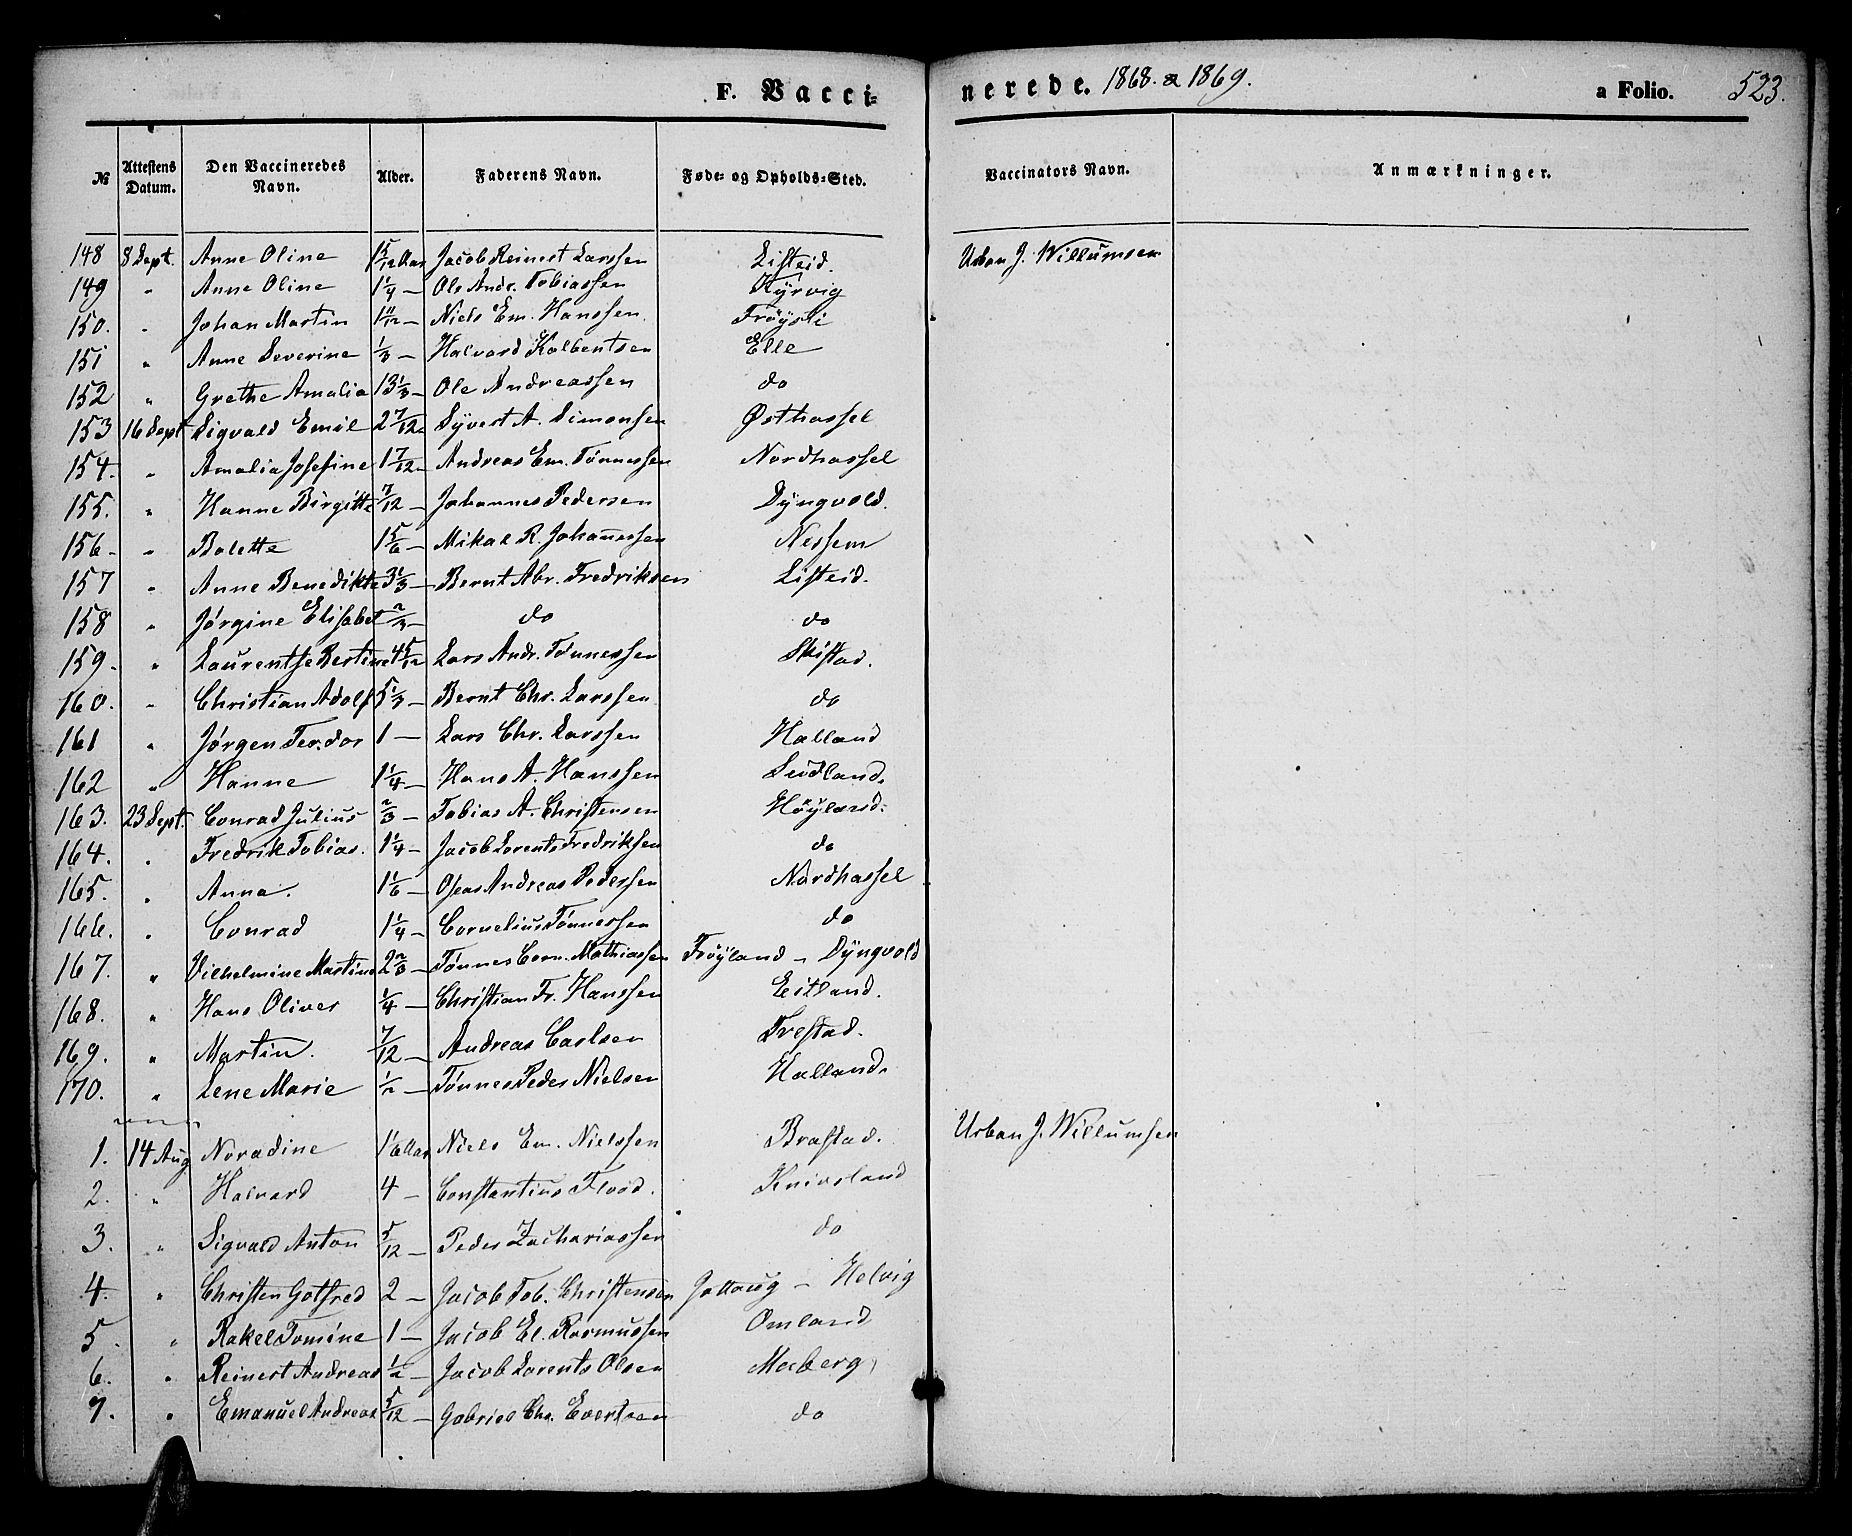 F. Vacci= nerede. 1868. & 1869. a Folio. 523.
№ Attestens Datum. Den Vaccineredes Navn. Alder. Faderens Navn. Føde= og Opholds=Sted. Vaccinators Navn. Anmærkninger.
148 8 Sept. Anne Oline 1 5/12 Aar Jacob Reinert Larssen Listeid. Urban J. Willumsen
149 " Anne Oline 1 1/4 — Ole Andr. Tobiassen Kyrvig
150. " Johan Martin 1 11/12 — Niels Em. Hanssen. Frøysti
151 " Anne Severine 1/3 — Halvard Kolbentsen Elle
152 " Grethe Amalia 13 1/3 — Ole Andreassen do
153 16 Sept Sigvald Emil 2 7/12 — Syvert A. Simonsen Østhassel
154. " Amalia Josefine 1 7/12 — Andreas Em. Tønnessen Nordhassel
155. " Hanne Birgitte 7/12 — Johannes Pedersen Dyngvold.
156 — " Bolette 1 5/6 — Mikal R. Johannessen Nessem
157 " Anne Benedikte 3 1/3 — Bernt Abr. Fredriksen Listeid.
158 " Jørgine Elisabet 2/3 — do do
159. " Laurentse Bertine 4 5/12 Lars Andr. Tønnessen Skistad.
160. " Christian Adolf 5 1/3 — Bernt Chr. Larssen do
161 " Jørgen Teodor 1 — Lars Chr. Larssen Halland
162 " Hanne 1 1/4 — Hans A. Hanssen Sudland.
163. 23 Sept. Conrad Julius 2/3 — Tobias A. Christensen Høyland.
164. " Fredrik Tobias. 1 1/4 — Jacob Lorents Fredriksen do
165. " Anna. 1 1/6 — Oseas Andreas Pedersen Nordhassel
166. " Conrad 1 1/4 — Cornelius Tønnessen do
167. " Vilhelmine Martine 2 2/3 — Tønnes Corn. Mathiassen Frøyland — Dyngvold
168. " Hans Oliver 1/4 — Christian Fr. Hanssen Eitland.
169. " Martin. 7/12 — Andreas Carlsen Trestad.
170. " Lene Marie 1/2 — Tønnes Peder Nielsen Halland.
1. 14 Aug Noradine 1/6 Aar Niels Em. Nielssen Brastad. Urban J. Willumsen
2. " Halvard 4 — Constantius Flood. Knivsland
3. " Sigvald Anton 5/12 — Peder Zachariassen do
4. " Christen Gotfred 2 — Jacob Tob. Christensen Jottaug — Helvig
5. " Rakel Tomine 1 — Jacob El. Rasmussen Omland
6. " Reinert Andreas 1/2 — Jacob Lorents Olsen Maberg
7. " Emanuel Andreas 5/12 — Gabriel Chr. Evertsen do